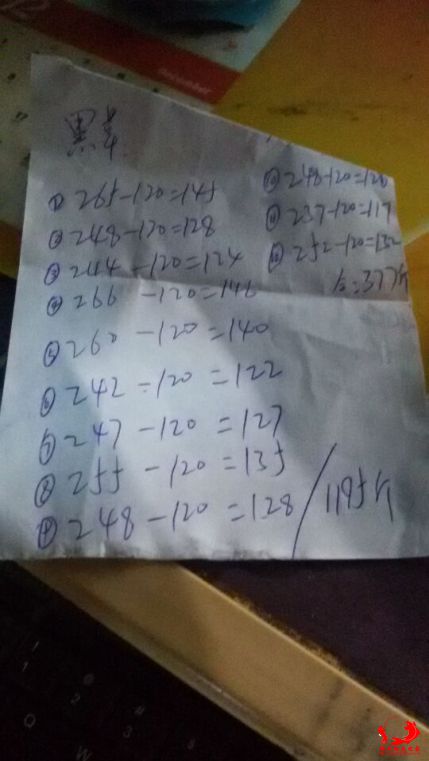 12
December
黑
① 265-120=145
② 248-120=128
③ 244-120=124
④ 266-120=146
⑤ 260-120=140
⑥ 242-120=122
⑦ 247-120=127
⑧ 255-120=135
⑨ 248-120=128/1195斤
⑩ 248-120=128
⑪ 237-120=117
⑫ 252-120=132
合:377斤